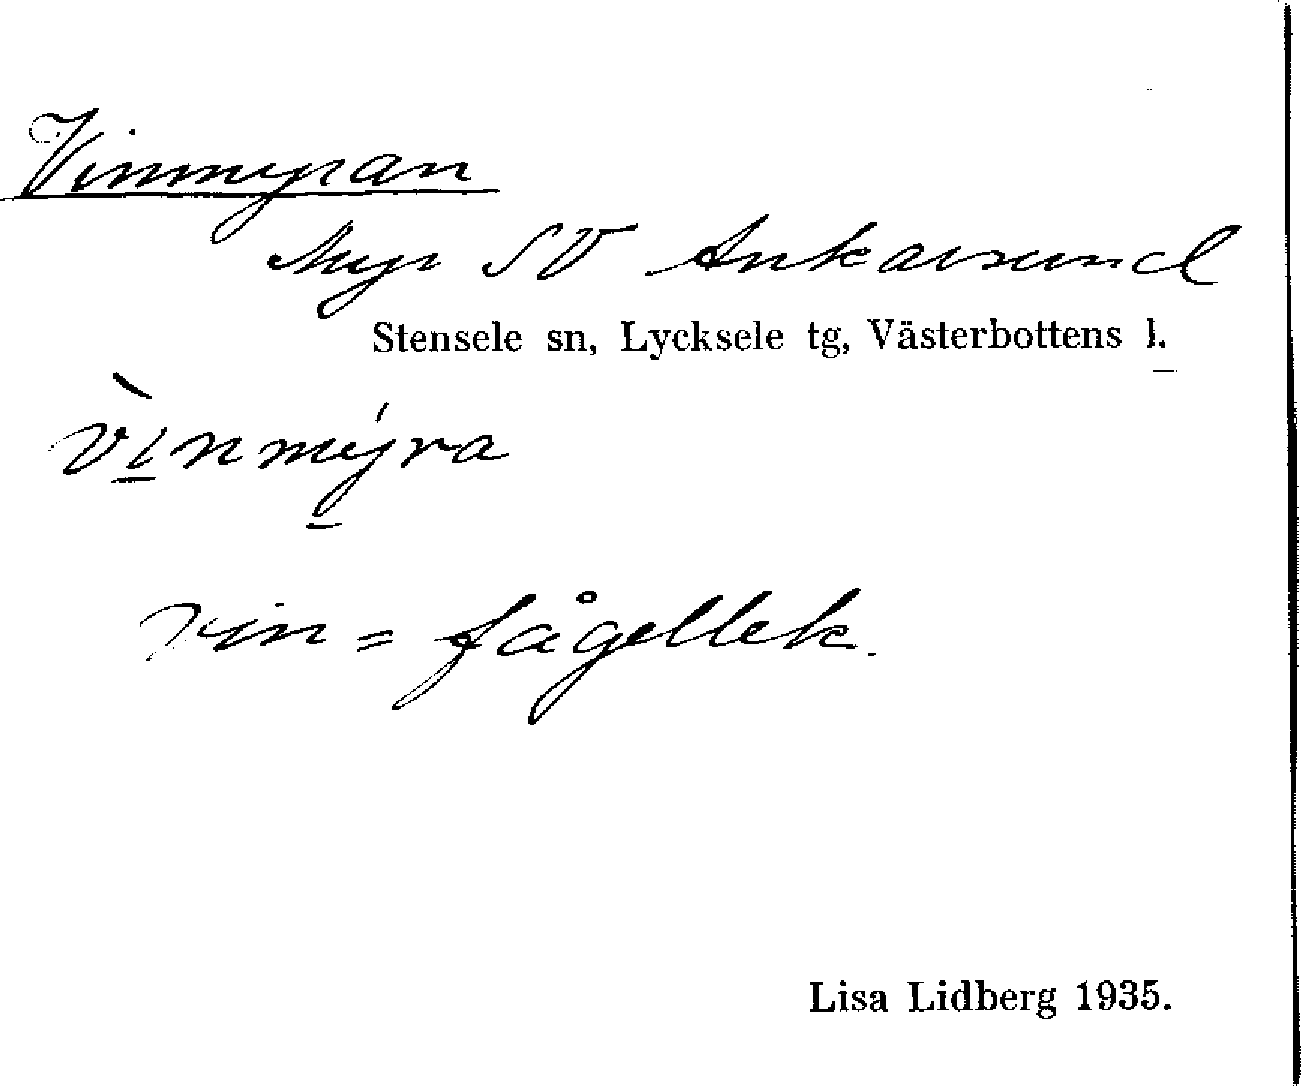 Vinmyran
Myr SV Ankarsund
Stensele sn, Lycksele tg, Västerbottens l.
vı̱̀nmý̱ra
vin = fågellek.
Lisa Lidberg 1935.